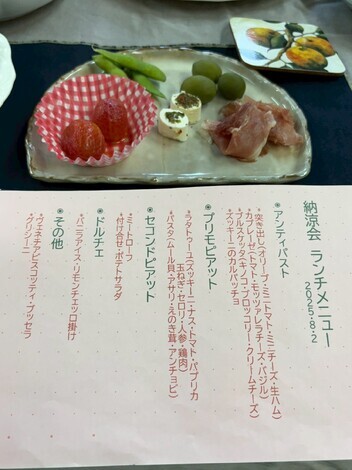 納涼会 ランチメニュー
2025・8・2
◉アンティパスト
・突き出し(オリーブ・ミニトマト・ミニチーズ・生ハム)
・カプレーゼ(トマト・モッツァレラチーズ・バジル)
・ブルスケッタ(エキノコ・ブロッコリー・クリームチーズ)
・ズッキーニのカルパッチョ
◉プリモピアット
・ラタトゥーユ(ズッキーニ・ナス・トマト・パプリカ
玉ねぎ・セロリ・人参・鶏肉)
・パスタ(ムール貝・アサリ・えのき茸・アンチョビ)
◉セコンドピアット
・ミートローフ
・付け合せ・ポテトサラダ
◉ドルチェ
・バニラアイス・リモンチェッロ掛け
◉その他
・ヴェネチアビスコッティ・ブッセラ
・グリッシーニ